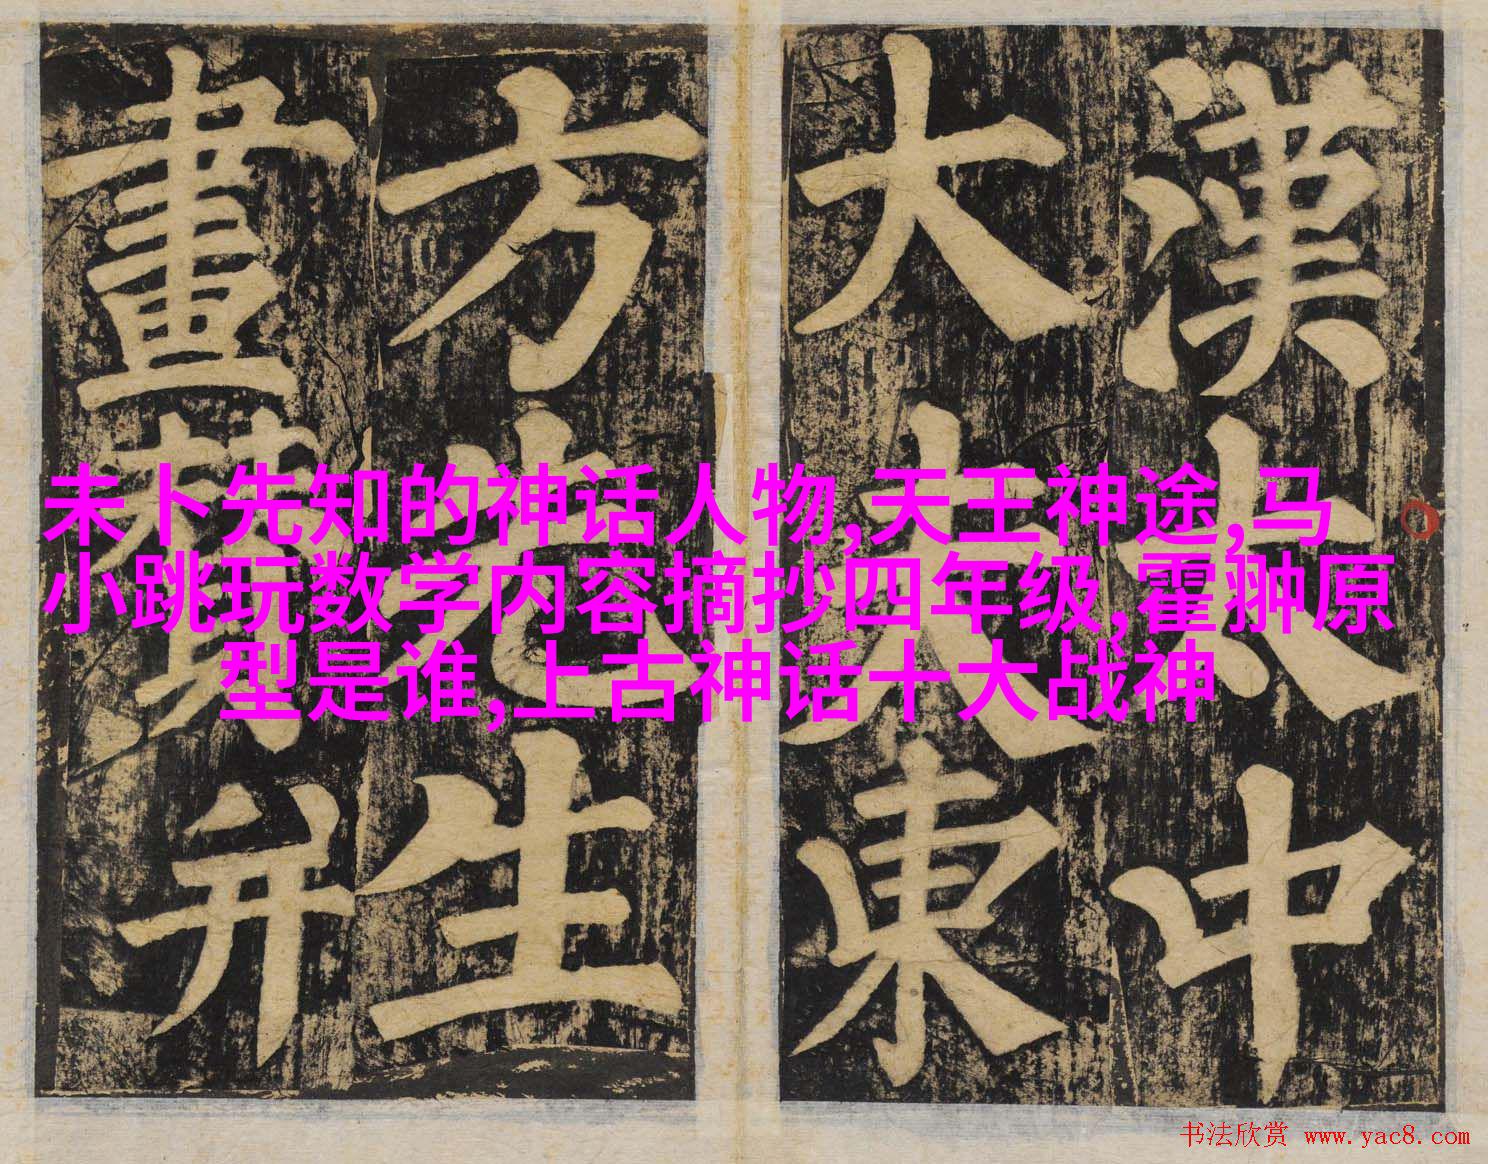 漢太中
大夫東
方先生
畫贊并
未卜先知的神话人物,天王神途,马
小跳玩数学内容摘抄四年级,霍翀原
型是谁,上古神话十大战神
书法欣赏 www.yac8.com